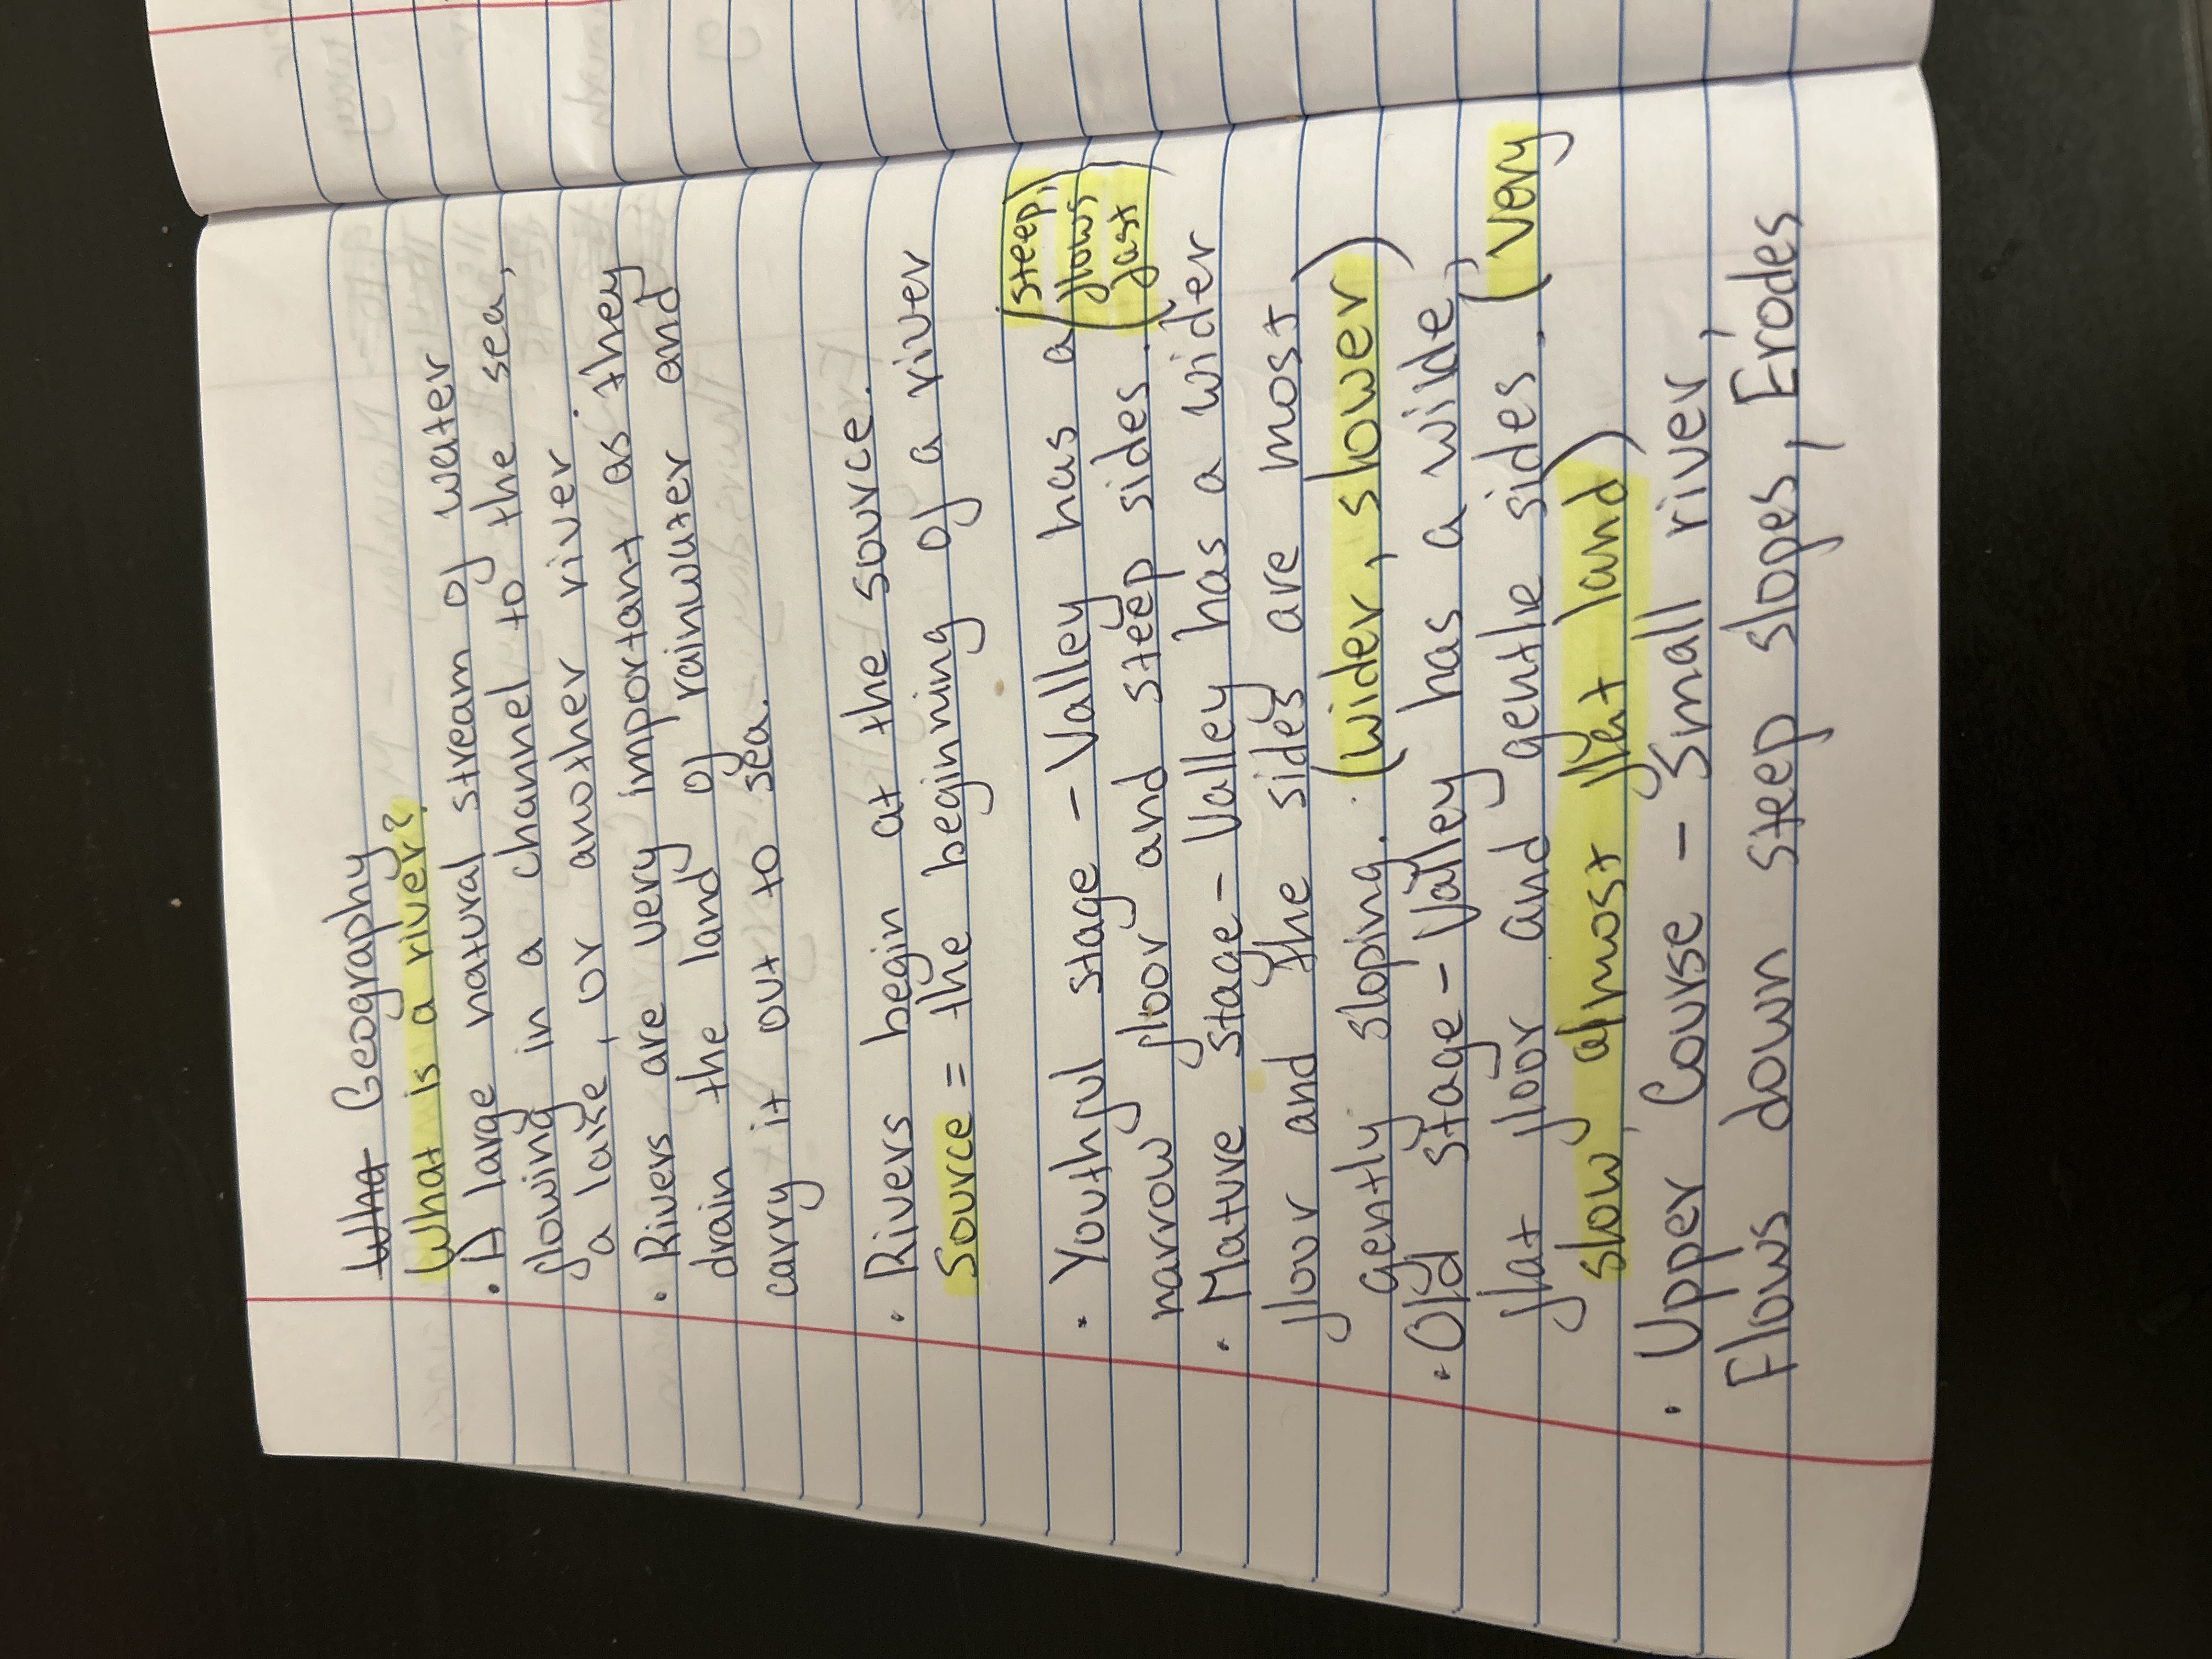 What Geography
What is a river?
• A large natural stream of water
flowing in a channel to the sea,
a lake, or another river.
• Rivers are very important as they
drain the land of rainwater and
carry it out to sea.
• Rivers begin at the source.
Source = the beginning of a river
• Youthful stage - Valley has a (steep, flows fast)
narrow floor and steep sides.
• Mature stage - Valley has a wider
floor and the sides are most
gently sloping. (wider, slower)
• Old stage - Valley has a wide,
flat floor and gentle sides. (very
slow, almost flat land)
• Upper Course - Small river,
Flows down steep slopes, Erodes